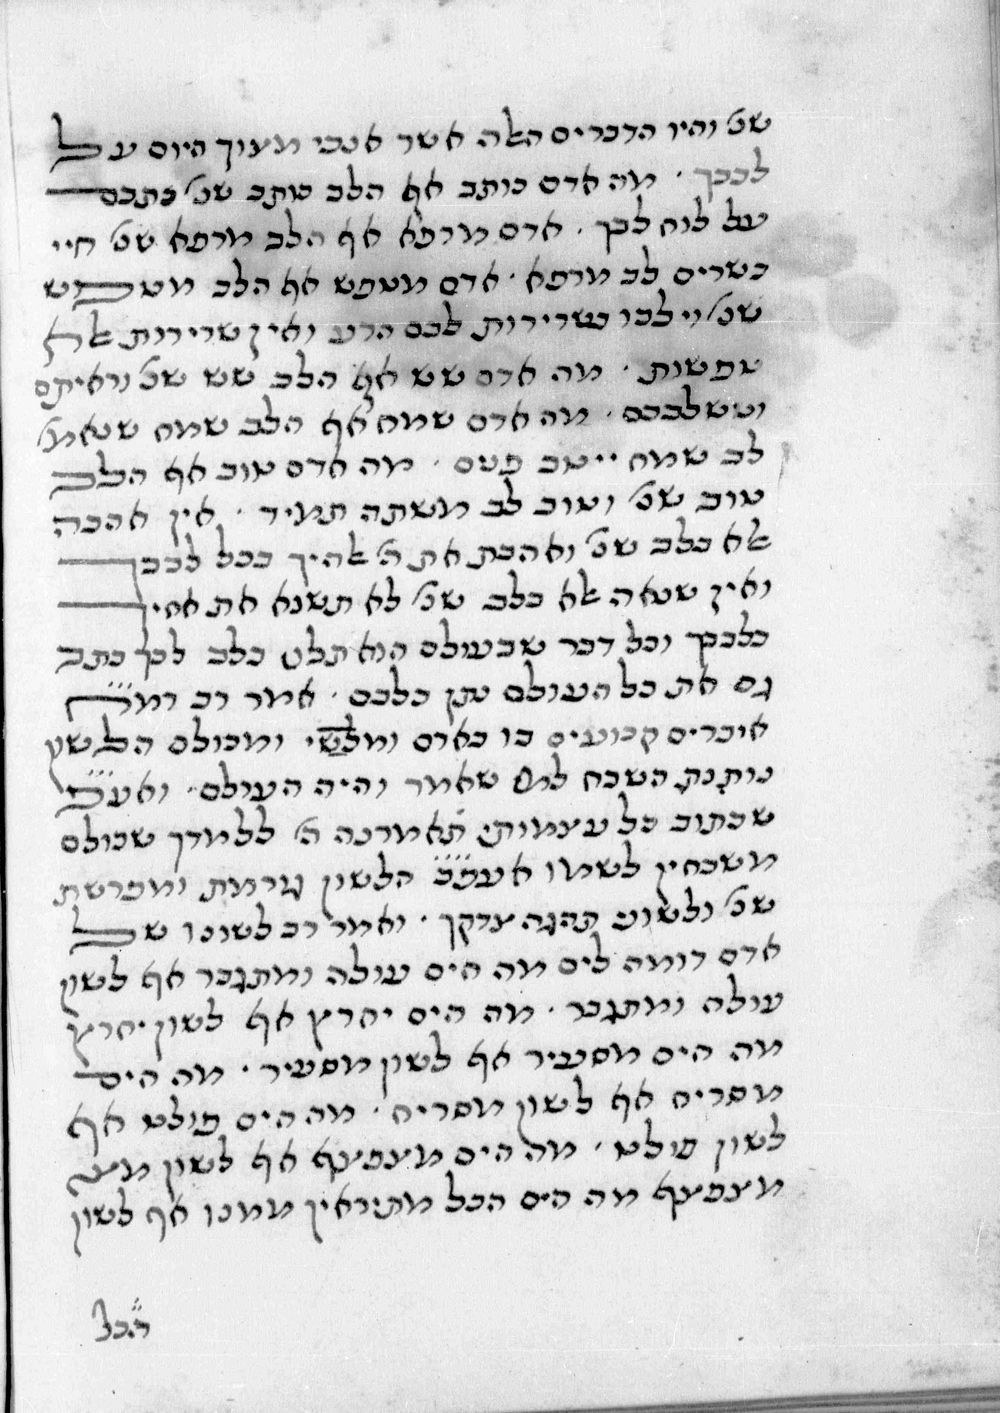 שנ' והיו הדברים האלה אשר אנכי מצוך היום על
לבבך · מה אדם כותב אף הלב כותב שנ' כתבם
על לוח לבך · אדם מרפא אף הלב מרפא שנ' חיי
בשרים לב מרפא · אדם מטפש אף הלב מטפש
שנ' וילכו בשרירות לבם הרע ואין שרירות אלא
טפשות · מה אדם שש אף הלב שש שנ' וראיתם
ושש לבכם · מה אדם שמח אף הלב שמח שנאמ'
לב שמח ייטב פנים · מה אדם טוב אף הלב
טוב שנ' וטוב לב משתה תמיד · אין אהבה
אלא בלב שנ' ואהבת את ה' אלהיך בכל לבבך
ואין שנאה אלא בלב שנ' לא תשנא את אחיך
בלבבך וכל דבר שבעולם הוא תלוי בלב לכך כתב
גם את כל העולם נתן בלבם · אמר רב רמ״ח
איברים קבועים בו באדם ומלשי ומכולם הלשון
נותנת השבח למי שאמר והיה העולם · ואע״פ
שכתוב כל עצמותי תאמרנה ה' ללמדך שכולם
משבחין לשמו אעפ״כ הלשון גורמת ומפרשת
שנ' ולשוני תהגה צדקך · ואמר רב לשונו של
אדם דומה לים מה הים עולה ומתגבר אף לשון
עולה ומתגבר · מה הים יחרץ אף לשון יחרץ
מה הים מסעיר אף לשון מסעיר · מה הים
מסריח אף לשון מסריח · מה הים פולט אף
לשון פולט · מה הים מצפצף אף לשון מצ
מצפצף מה הים הכל מתיראין ממנו אף לשון